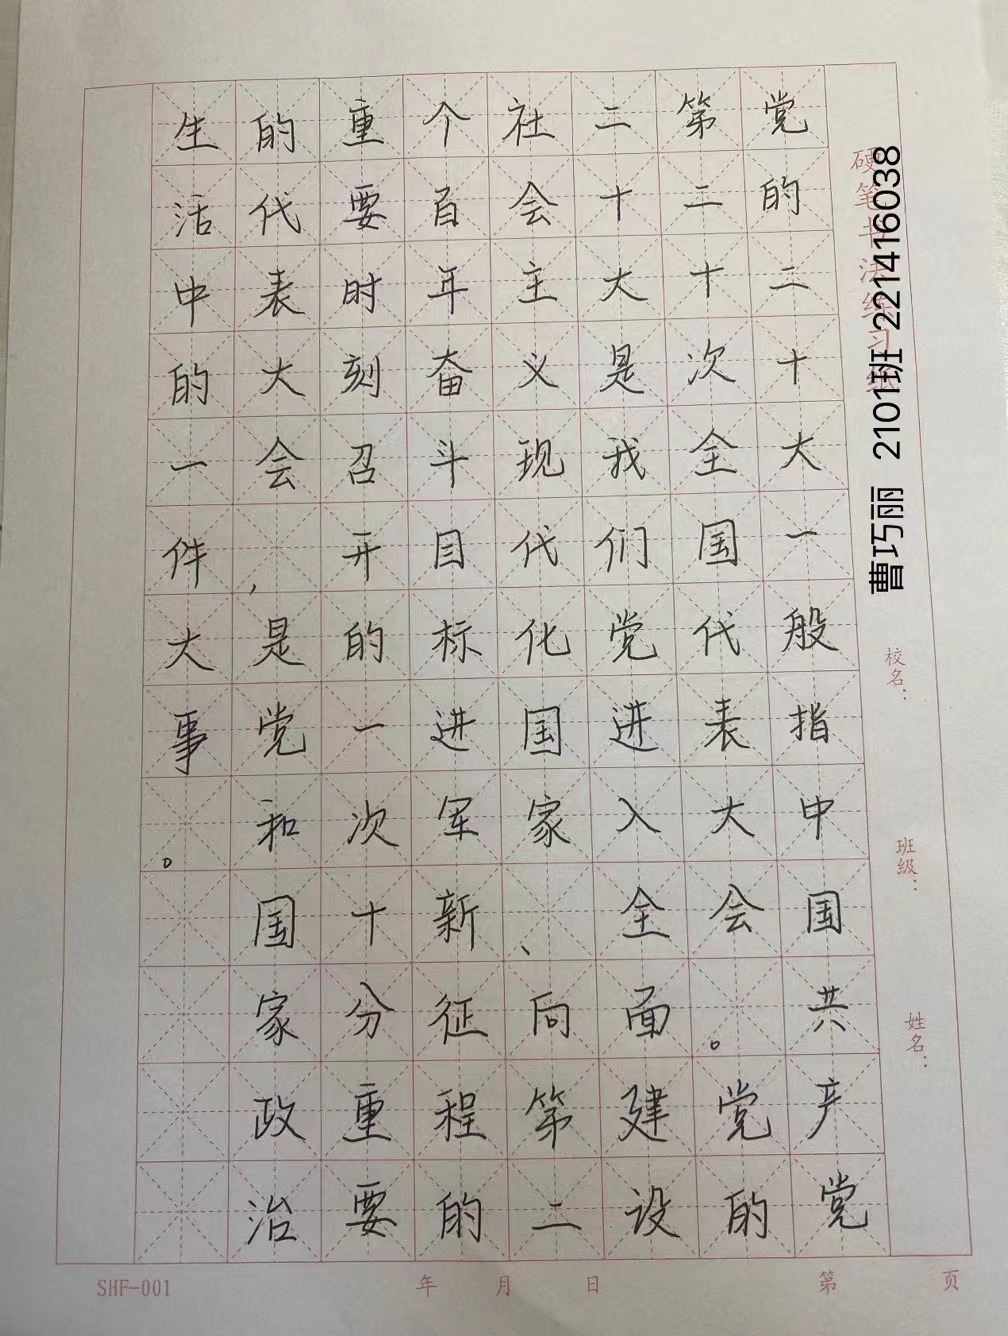 硬笔书法练习
曹巧丽 2101班 221416038
校名：
班级：
姓名：
党的二十大一般指中国共产党
第二十次全国代表大会。党的
二十大是我们党进入全面建设
社会主义现代化国家、向第二
个百年奋斗目标进军新征程的
重要时刻召开的一次十分重要
的代表大会，是党和国家政治
生活中的一件大事。
SHF-001 年 月 日 第 页